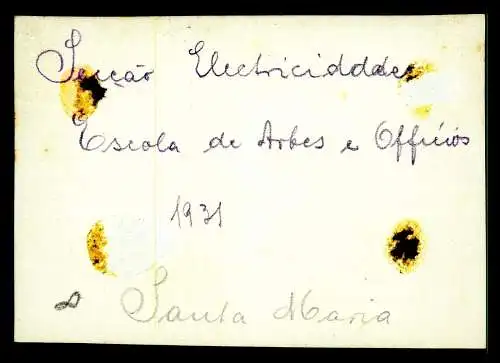 Secção Electricidade
Escola de Artes e Officios
1931
Santa Maria